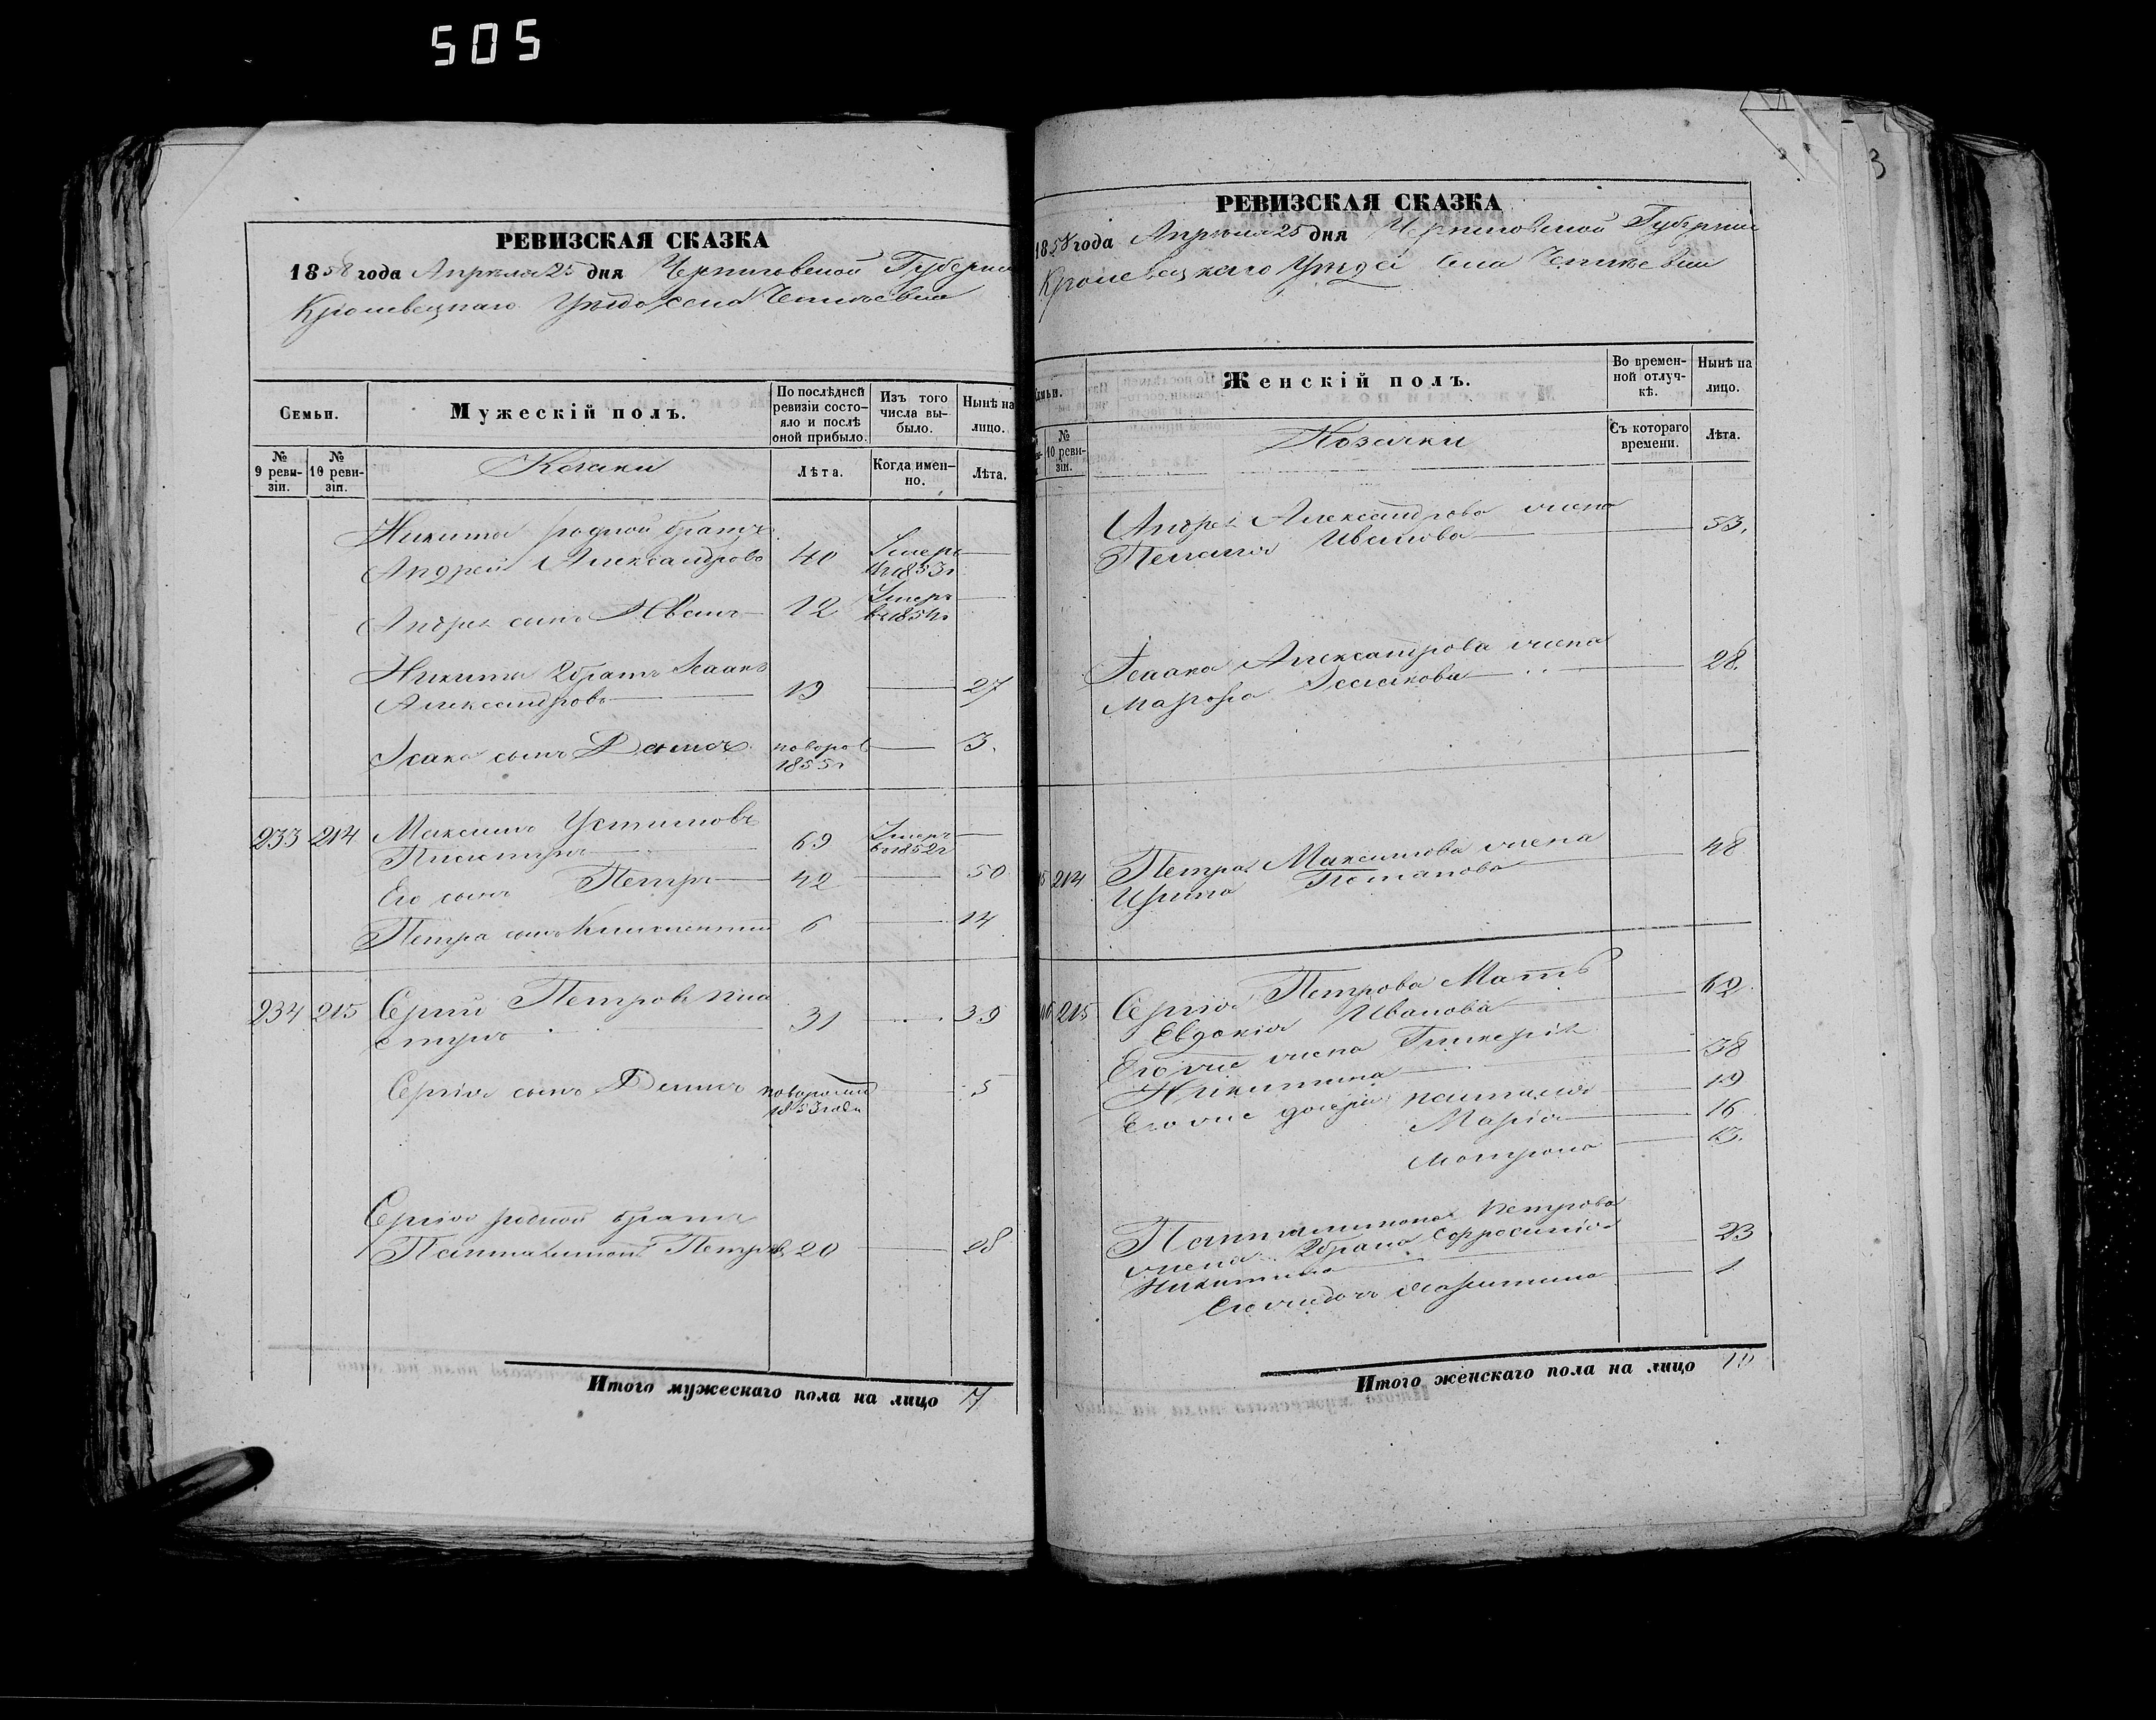 505
РЕВИЗСКАЯ СКАЗКА
1858 года Апреля 25 дня Черниговской Губерніи
Кролевецкаго Уезда села
Семьи.
Мужескій полъ.
По послѣдней ревизіи состояло и послѣ оной прибыло.
Изъ того числа выбыло.
Нынѣ на лицо.
№ 9 ревизіи.
№ 10 ревизіи.
Козаки
Лѣта.
Когда именно.
Лѣта.
Никиты родной братъ
Андрей Александровъ 40 Умеръ
въ 1853г
Андрея сынъ Иванъ 12 Умеръ
въ 1854г
Никиты 2 братъ Исаакъ
Александровъ 19 27
Исака сынъ новорож 3.
1855г
233 214 Максимъ Устимовъ
69 Умеръ
въ 1852г
Его сынъ Петръ 42 50
Петра сынъ Климентій 6 14
234 215 Сергій Петровъ Пис
31 39
Сергія сынъ новорожд 5
1853года
Сергія родной братъ
Пантелимонъ Петровъ 20 28
Итого мужескаго пола на лицо 7
3
РЕВИЗСКАЯ СКАЗКА
1858 года Апреля 25 дня Черниговской Губерніи
Кролевецкаго Уезда села
Семьи.
Женскій полъ.
Во временной отлучкѣ.
Нынѣ на лицо.
№ 10 ревизіи.
Козачки
Съ котораго времени.
Лѣта.
Андрея Александрова жена
Пелагія Иванова 53.
Исаака Александрова жена
Марфа Исакова 28.
214 Петра Максимова жена
Ирина Потапова 48
215 Сергія Петрова Мать
Евдокія Иванова 62.
Его же жена Гликерія
Никитина 38
Его же дочери Наталія 19
Марія 16
Матрона 13.
Пантелимона Петрова
жена 2 брака Ефросинія
Никитина 23
Его же дочь 1
Итого женскаго пола на лицо 10